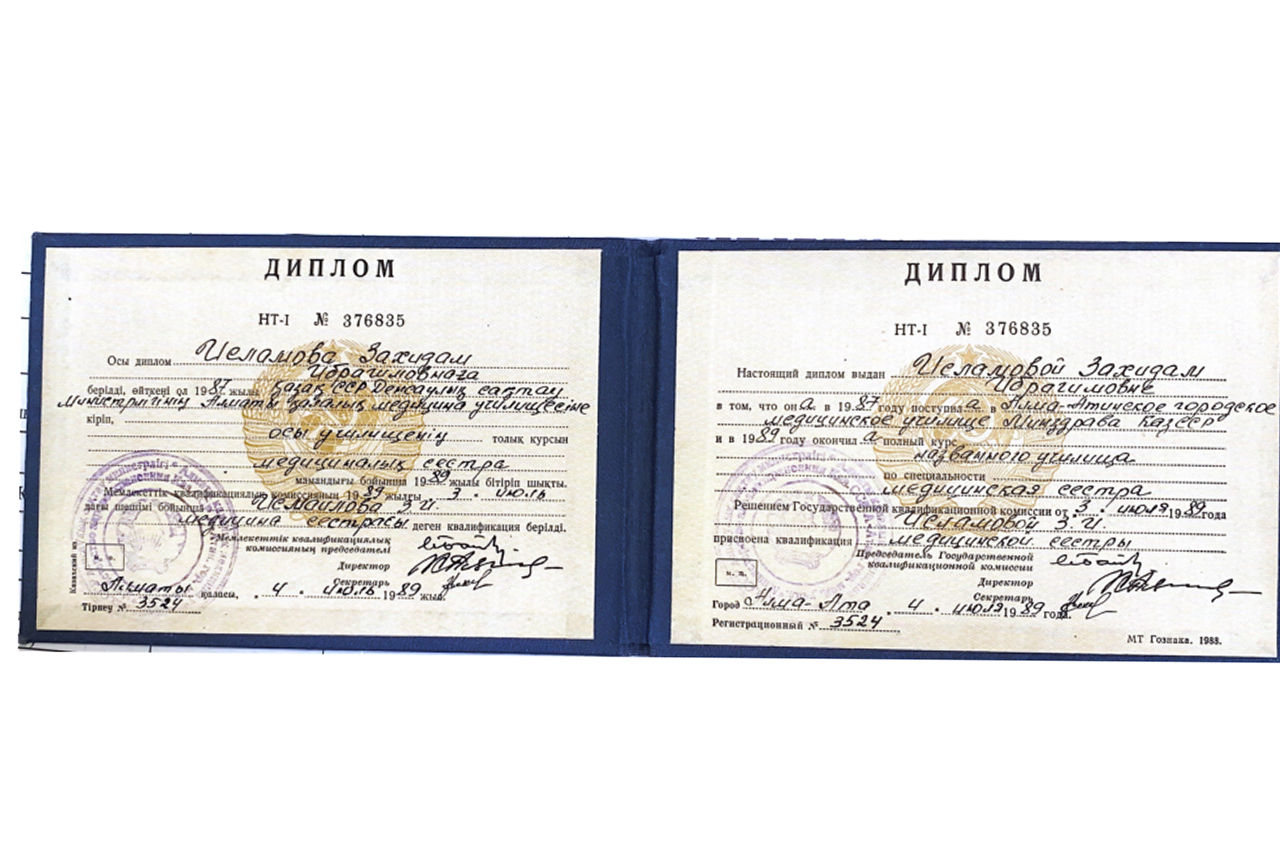 ДИПЛОМ
НТ-I № 376835
Осы диплом Исламова Захидам
Ибрагимовнаға
берілді, өйткені ол 1987 жылы Қазақ ССР Денсаулық сақтау
министрлігінің Алматы қалалық медицина училищесіне
кіріп,
осы училищенің толық курсын
медициналық сестра
мамандығы бойынша 1989 жылы бітіріп шықты.
Мемлекеттік квалификациялық комиссияның 1989 жылғы 3. июль
дағы шешімі бойынша З.И.
медицина сестрасы деген квалификация берілді.
Мемлекеттік квалификациялық
комиссияның председателі
Директор
Секретарь
Казахский яз
м. о.
Алматы қаласы, 4. июль 1989 жыл.
Тіркеу № 3524
ДИПЛОМ
НТ-I № 376835
Настоящий диплом выдан Исламовой Захидам
Ибрагимовне
в том, что она в 1987 году поступила в Алма-Атинское городское
медицинское училище Минздрава КазССР
и в 1989 году окончила полный курс
названного училища
по специальности
медицинская сестра
Решением Государственной квалификационной комиссии от 3. июля 1989 года
Исламовой З.И.
присвоена квалификация медицинской сестры
Председатель Государственной
квалификационной комиссии
Директор
Секретарь
м. п.
Город Алма-Ата 4. июля 1989 года.
Регистрационный № 3524
МТ Гознака. 1988.